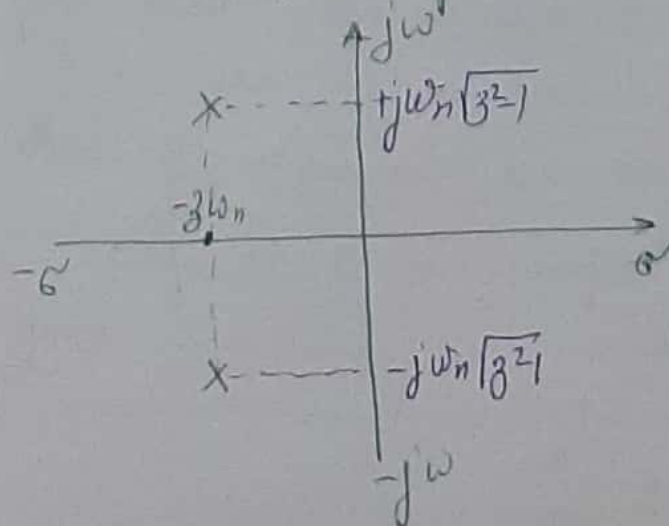 jω
+jωn√(3²-1)
-3ωn
-σ
σ
-jωn√(3²-1)
-jω